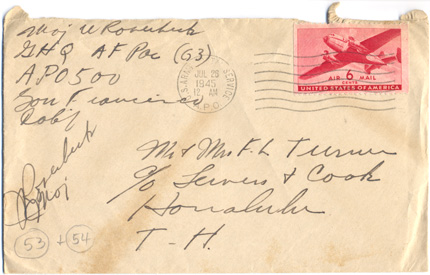 Maj W Rosebush
GHQ AF Pac (G3)
APO 500
San Francisco
Calif
U.S. ARMY POSTAL SERVICE
JUL 25
1945
12 AM
A.P.O.
AIR 6 MAIL
CENTS
UNITED STATES OF AMERICA
Mr & Mrs F. L. Turner
c/o Lewers & Cook
Honolulu
T-H.
Maj
53 + 54